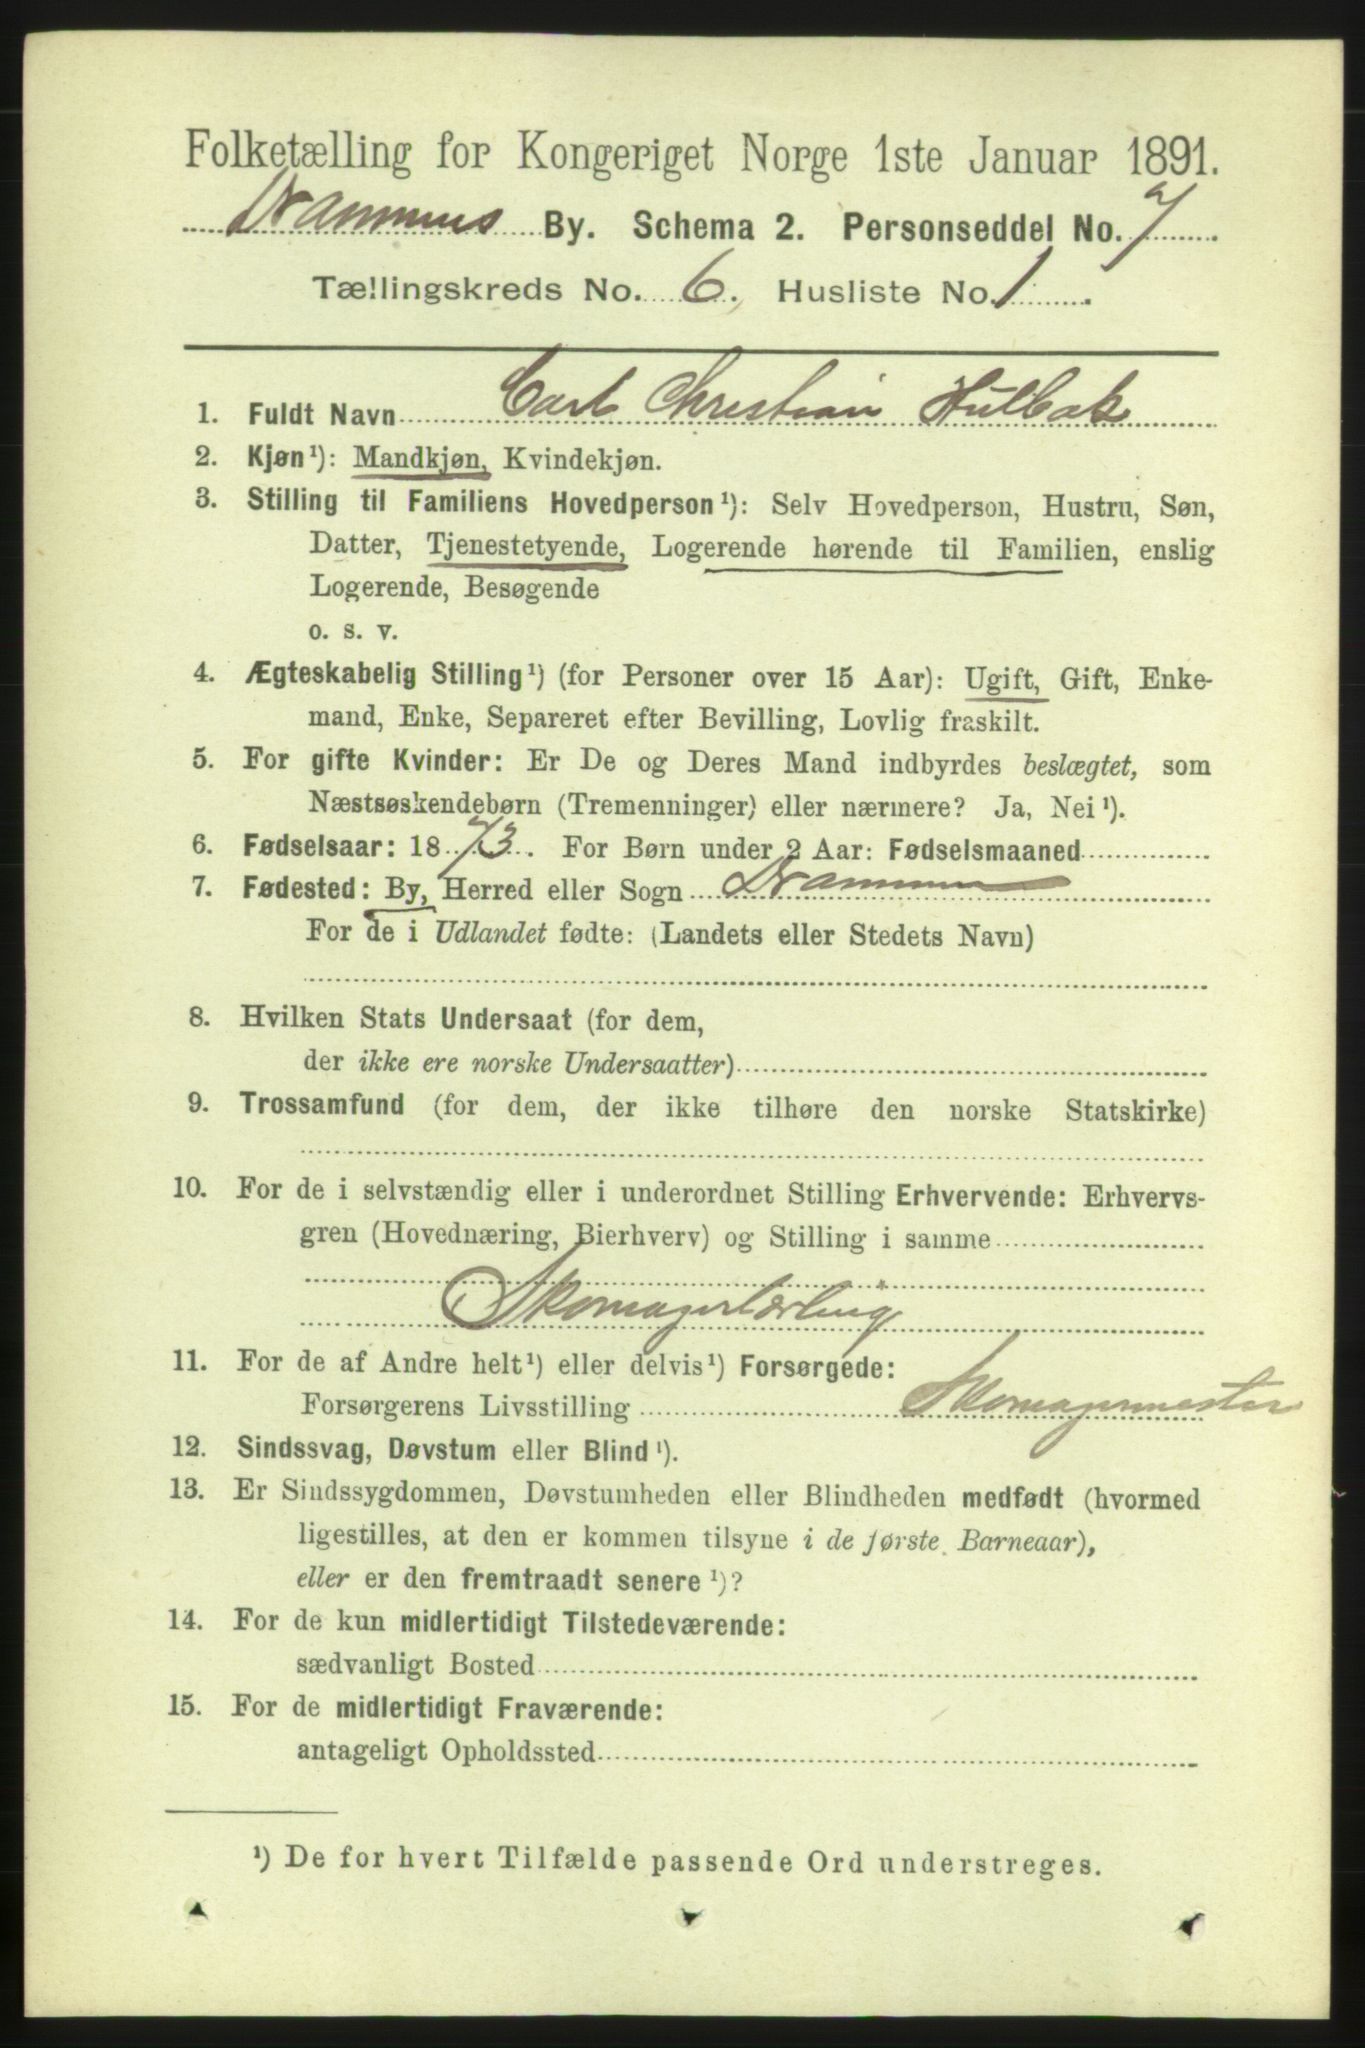 Folketælling for Kongeriget Norge 1ste Januar 1891.
Drammens By. Schema 2. Personseddel No. 7
Tællingskreds No. 6. Husliste No. 1.
1. Fuldt Navn Carl Christian Hulbak
2. Kjøn¹): Mandkjøn, Kvindekjøn.
3. Stilling til Familiens Hovedperson¹): Selv Hovedperson, Hustru, Søn,
Datter, Tjenestetyende, Logerende hørende til Familien, enslig
Logerende, Besøgende
o. s. v.
4. Ægteskabelig Stilling¹) (for Personer over 15 Aar): Ugift, Gift, Enke-
mand, Enke, Separeret efter Bevilling, Lovlig fraskilt.
5. For gifte Kvinder: Er De og Deres Mand indbyrdes beslægtet, som
Næstsøskendebørn (Tremenninger) eller nærmere? Ja, Nei¹).
6. Fødselsaar: 1873. For Børn under 2 Aar: Fødselsmaaned
7. Fødested: By, Herred eller Sogn Drammen
For de i Udlandet fødte: (Landets eller Stedets Navn)
8. Hvilken Stats Undersaat (for dem,
der ikke ere norske Undersaatter)
9. Trossamfund (for dem, der ikke tilhøre den norske Statskirke)
10. For de i selvstændig eller i underordnet Stilling Erhvervende: Erhvervs-
gren (Hovednæring, Bierhverv) og Stilling i samme
Skomagerlærling
11. For de af Andre helt¹) eller delvis¹) Forsørgede:
Forsørgerens Livsstilling Skomagermester
12. Sindssvag, Døvstum eller Blind¹).
13. Er Sindssygdommen, Døvstumheden eller Blindheden medfødt (hvormed
ligestilles, at den er kommen tilsyne i de første Barneaar),
eller er den fremtraadt senere¹)?
14. For de kun midlertidigt Tilstedeværende:
sædvanligt Bosted
15. For de midlertidigt Fraværende:
antageligt Opholdssted
¹) De for hvert Tilfælde passende Ord understreges.